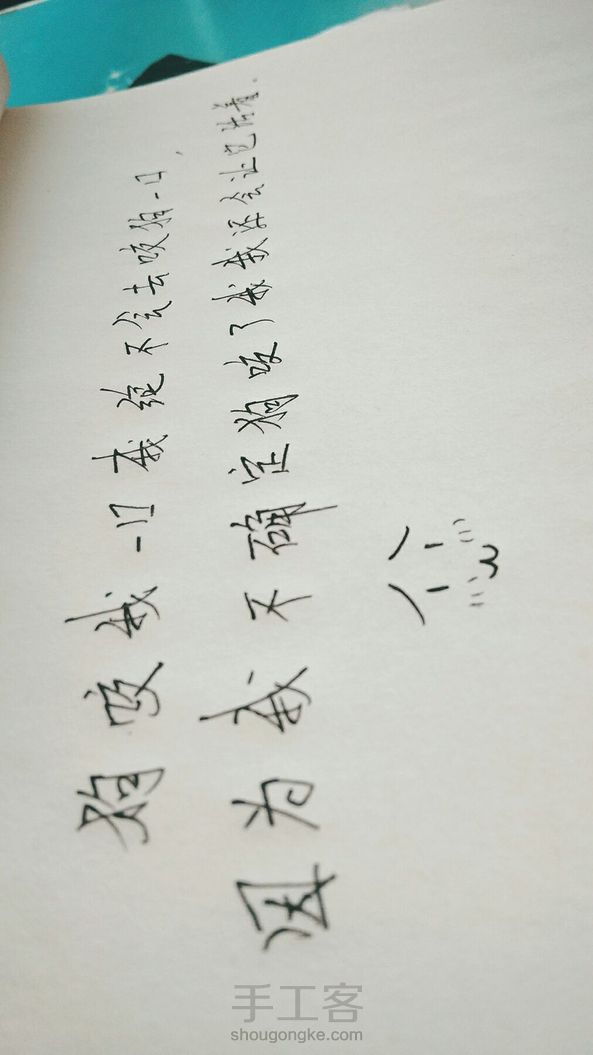 狗咬我一口我绝不会去咬狗一口，
因为我不确定狗咬了我我还会让它活着.
手工客
shougongke.com